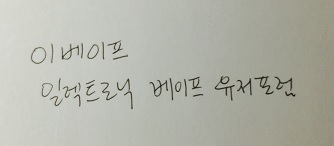 이베이프
일렉트로닉 베이프 유저포럼